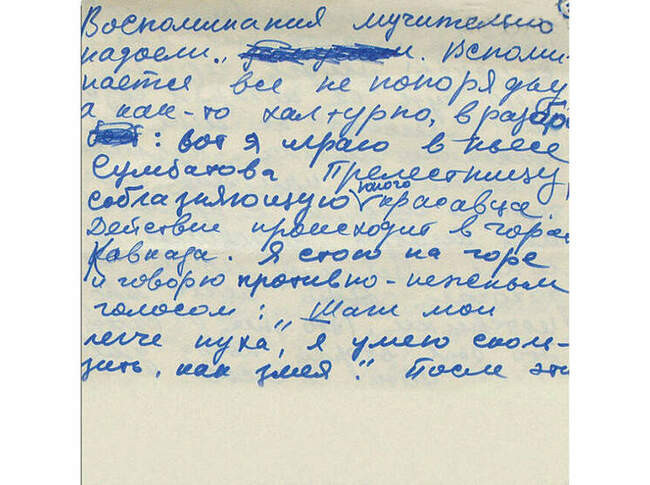 Воспоминания мучительно
надоели. Вспоми-
нается все не по порядку
а как-то халтурно, в разбро
: вот я играю в пьесе
Сумбатова Прелестницу,
соблазняющую юного красавца.
Действие происходит в горах
Кавказа. Я стою на горе
и говорю противно-нежным
голосом: „Шаги мои
легче пуха, я умею сколь-
зить, как змея". После эти